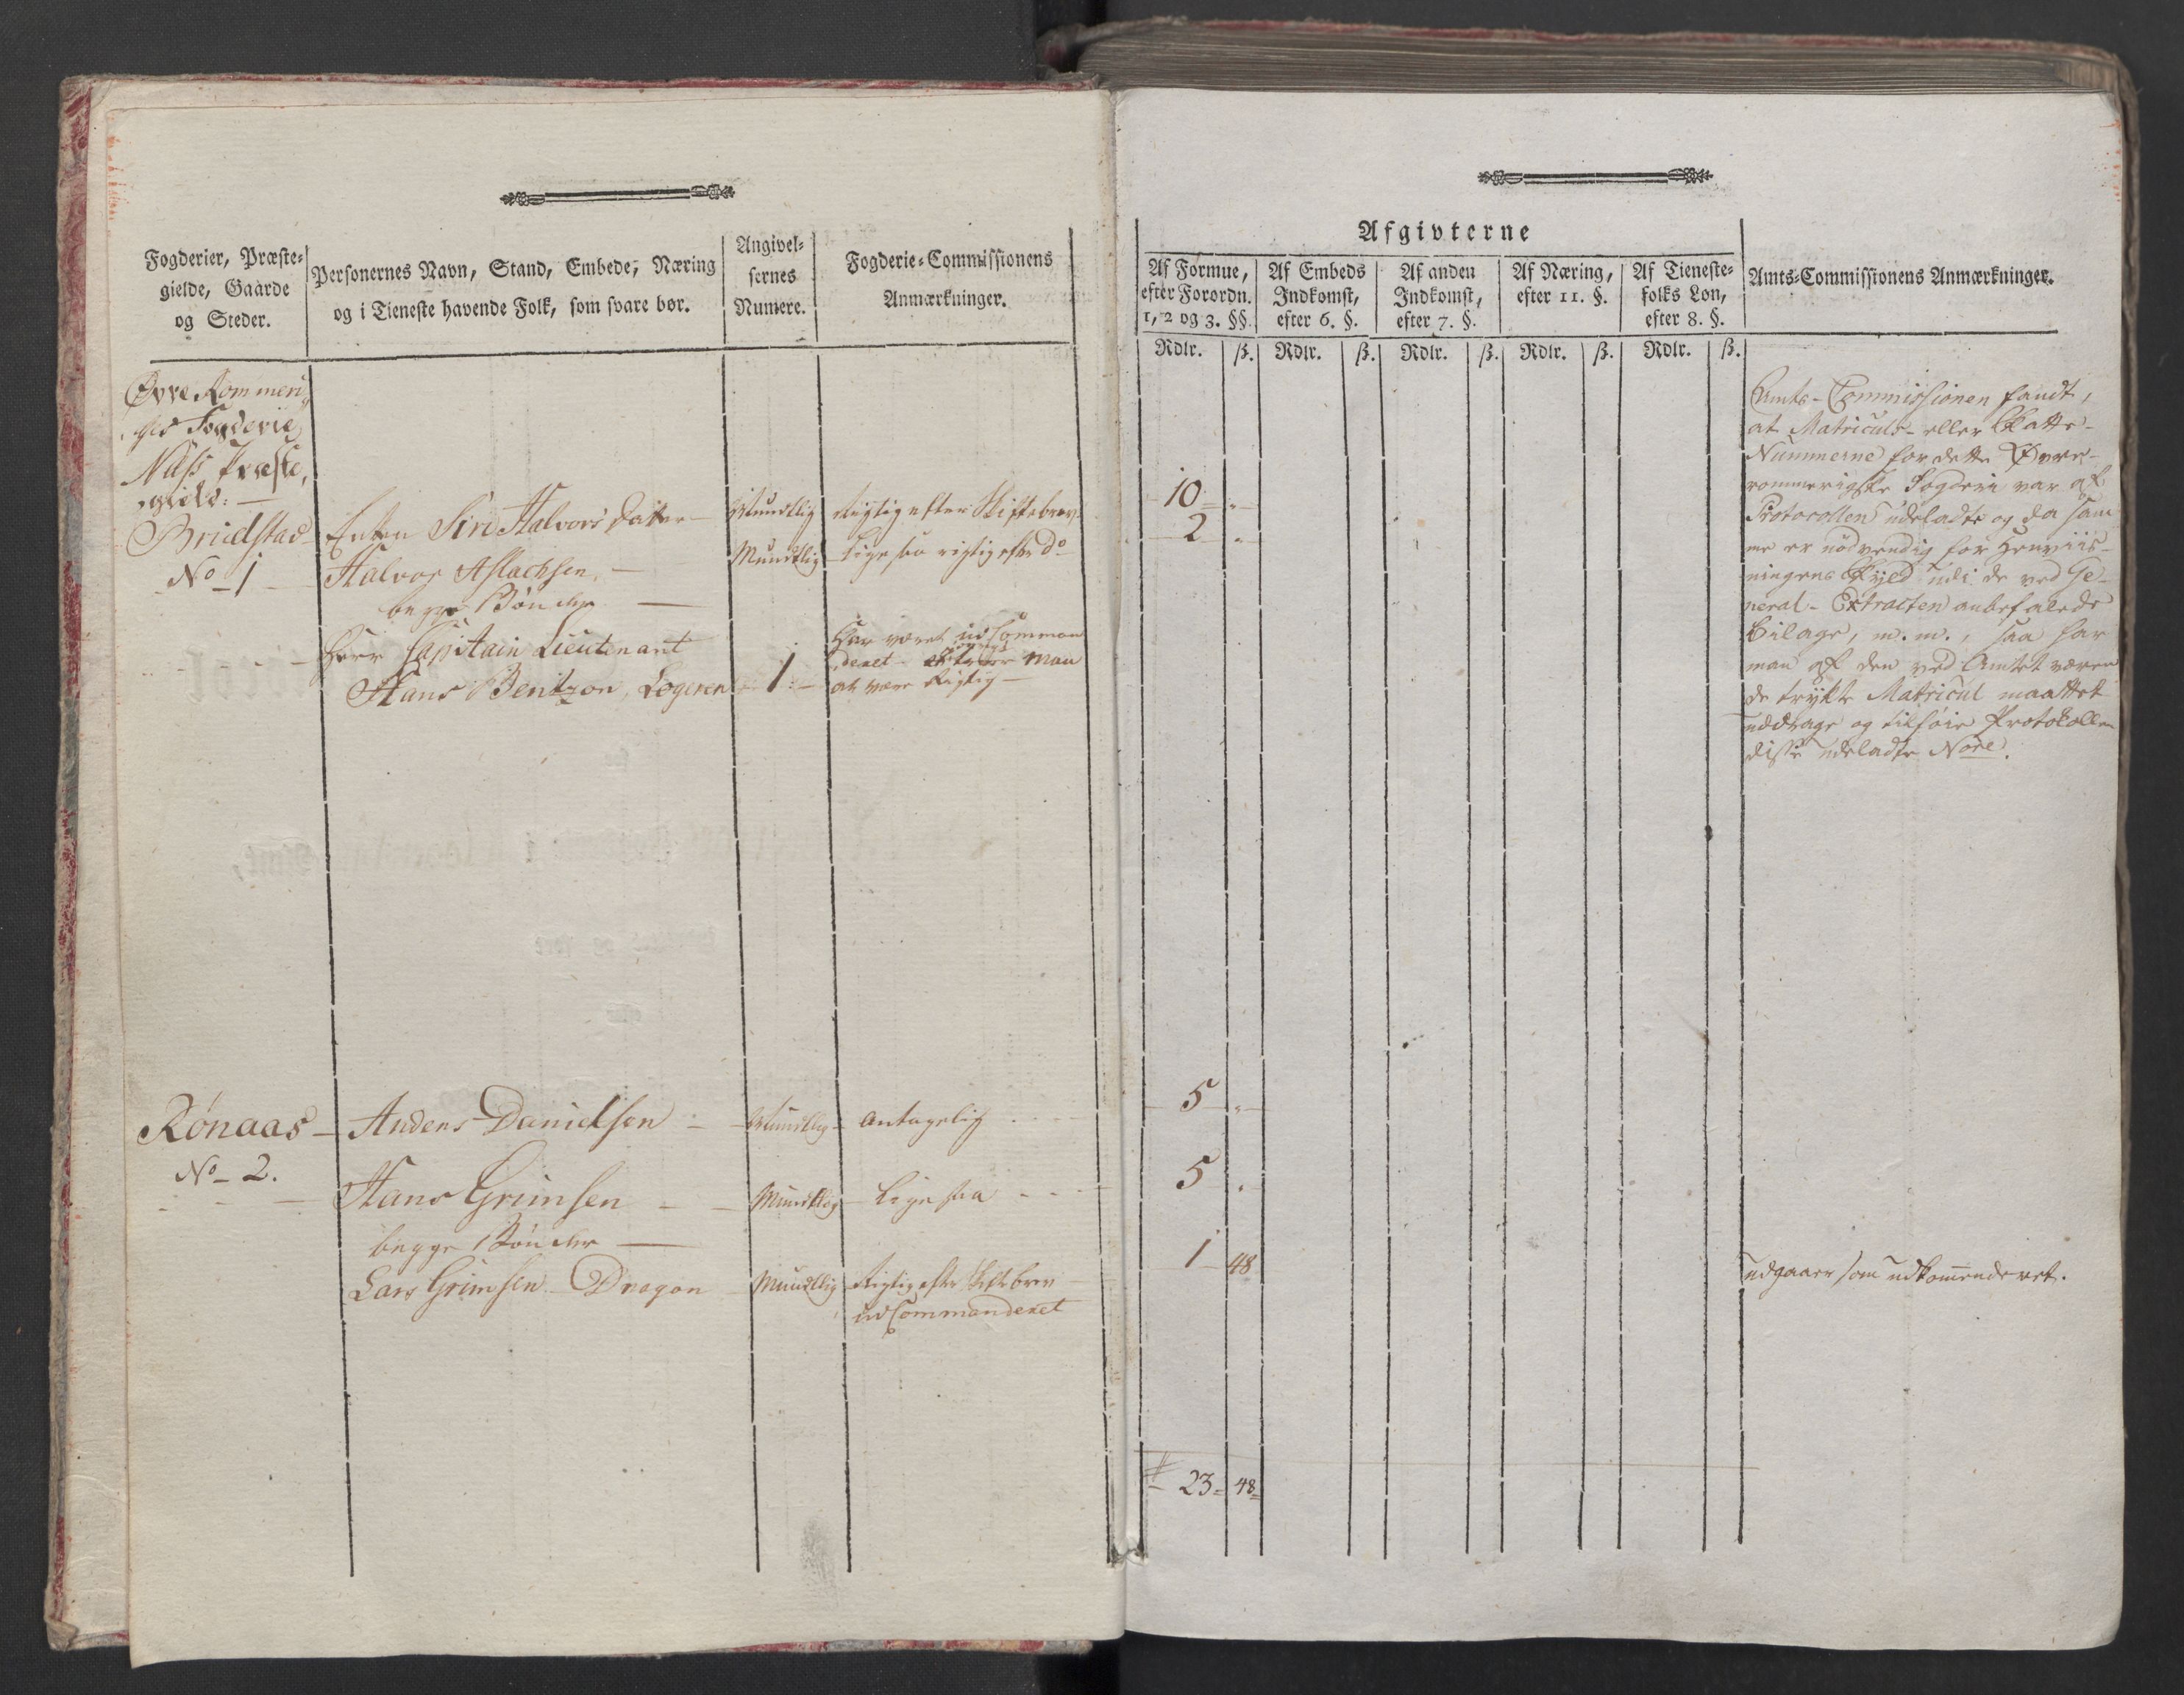 Fogderier, Præste-
gielde, Gaarde
og Steder.
Personernes Navn, Stand, Embede, Næring
og i Tieneste havende Folk, som svare bør.
Angivel-
sernes
Numere.
Fogderie-Commissionens
Anmærkninger.
Øvre Rommerig
ges Fogderie
Næss Præste,
gield: —
Brudstad
No 1
Enken Siri Halvors Datter — Mundtlig Rigtig efter Skiftebrev.
Halvor Aslachsen, — Mundtlig — lige saa rigtig efter Do
begge Bønder —
Herr Capitain Lieutenant
Hans Bentzon, Logeren — 1 —
Har været udComman
deret — man
at være Rigtig —
Rønaas — Anders Danielsen — Mundtlig — Antagelig
No 2.
Hans Grimsen — Mundtlig — Ligesaa
begge Bønder —
Lars Grimsen Dragon — Mundtlig Rigtig efter Skiftebrev
udCommanderet
Afgivterne
Af Formue,
efter Forordn.
1, 2 og 3. §§.
Af Embeds
Indkomst,
efter 6. §.
Af anden
Indkomst,
efter 7. §.
Af Næring,
efter 11. §.
Af Tieneste-
folks Løn,
efter 8. §.
Amts-Commissionens Anmærkninger.
Rdlr. ß. Rdlr. ß. Rdlr. ß. Rdlr. ß. Rdlr. ß.
10 "
2 "
5 "
5 "
1 48
23 48
Amts-Commissionen fandt,
at Matriculs- eller Skatte-
Nummerne for dette Øvre-
rommerigske Fogderi var af
Protocollen udeladte og da sam
me er nødvendig for Henviis-
ningens Skyld udi de ved Ge-
neral-Extracten anbefalede
Bilage, m. m., saa har
man af den ved Amtet væren
de trykte Matricul maattet
uddrage og tilføie Protokollen
disse udeladte Nore.
udgaaer som udkommenderet.